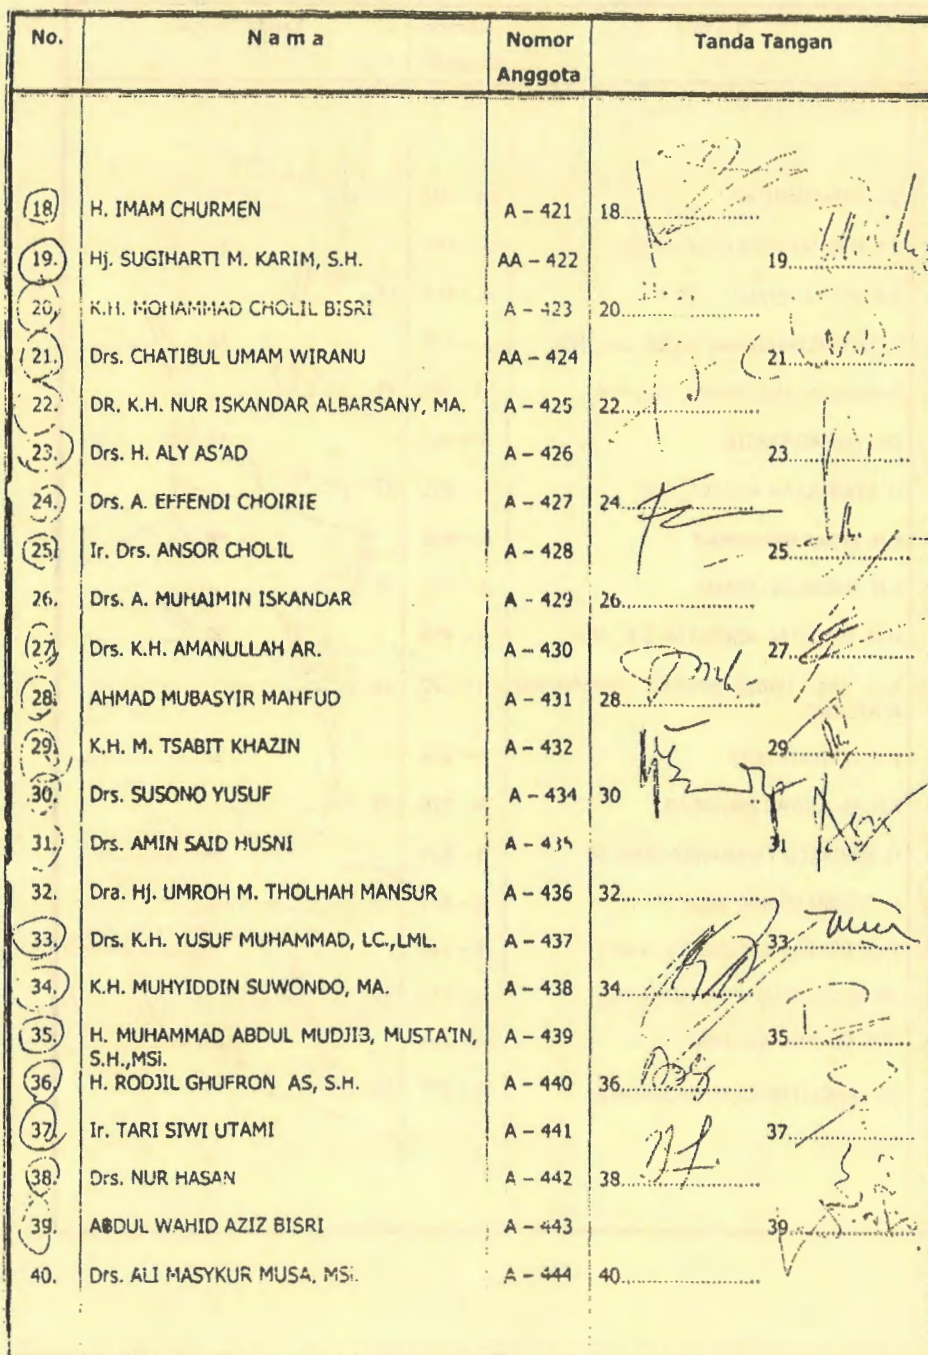 No. Nama Nomor Anggota Tanda Tangan
18. H. IMAM CHURMEN A – 421 18
19. Hj. SUGIHARTI M. KARIM, S.H. AA – 422 19
20. K.H. MOHAMMAD CHOLIL BISRI A – 423 20
21. Drs. CHATIBUL UMAM WIRANU AA – 424 21
22. DR. K.H. NUR ISKANDAR ALBARSANY, MA. A – 425 22
23. Drs. H. ALY AS'AD A – 426 23
24. Drs. A. EFFENDI CHOIRIE A – 427 24
25. Ir. Drs. ANSOR CHOLIL A – 428 25
26. Drs. A. MUHAIMIN ISKANDAR A – 429 26
27. Drs. K.H. AMANULLAH AR. A – 430 27
28. AHMAD MUBASYIR MAHFUD A – 431 28
29. K.H. M. TSABIT KHAZIN A – 432 29
30. Drs. SUSONO YUSUF A – 434 30
31. Drs. AMIN SAID HUSNI A – 435 31
32. Dra. Hj. UMROH M. THOLHAH MANSUR A – 436 32
33. Drs. K.H. YUSUF MUHAMMAD, LC.,LML. A – 437 33
34. K.H. MUHYIDDIN SUWONDO, MA. A – 438 34
35. H. MUHAMMAD ABDUL MUDJIB, MUSTA'IN, A – 439 35
S.H.,MSi.
36. H. RODJIL GHUFRON AS, S.H. A – 440 36
37. Ir. TARI SIWI UTAMI A – 441 37
38. Drs. NUR HASAN A – 442 38
39. ABDUL WAHID AZIZ BISRI A – 443 39
40. Drs. ALI MASYKUR MUSA, MSi. A – 444 40